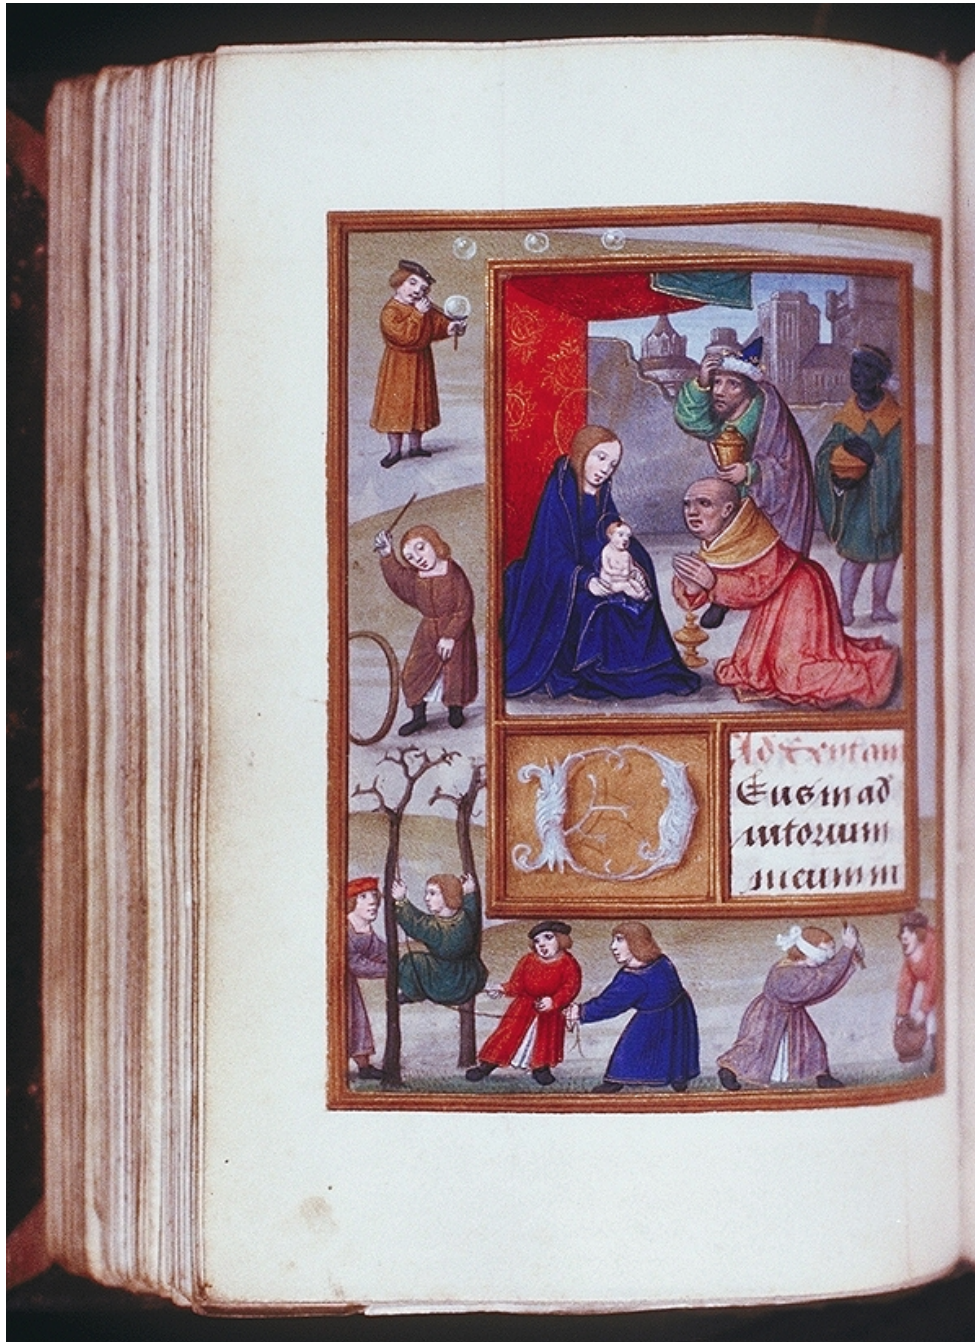 Ad Sextam
D Eus in ad
iutorium
meum in